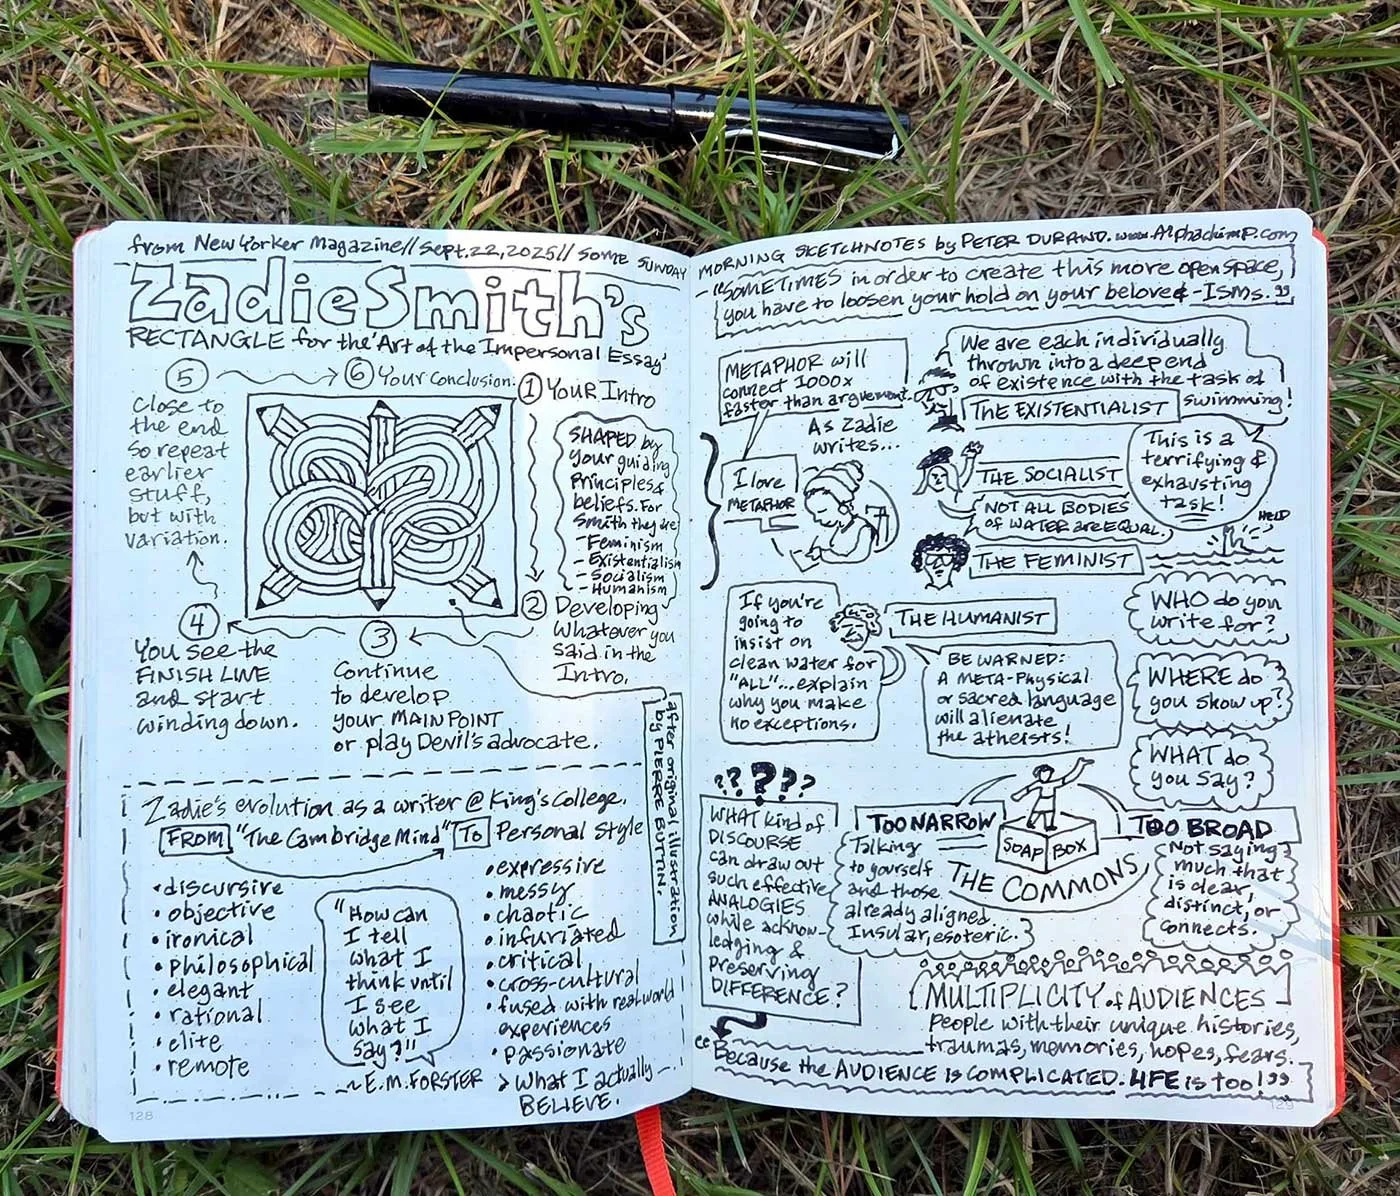 from New Yorker Magazine // Sept. 22, 2025 // Some Sunday
Zadie Smith's
RECTANGLE for the 'Art of the Impersonal Essay'
5
6 Your Conclusion.
1 YOUR Intro
Close to
the end
so repeat
earlier
stuff,
but with
variation.
SHAPED by
your guiding
principles &
beliefs. For
Smith they are
- Feminism
- Existentialism
- Socialism
- Humanism
2 Developing
whatever you
said in the
Intro.
3
Continue
to develop
your MAIN POINT
or play Devil's advocate.
4
You see the
FINISH LINE
and start
winding down.
after original illustration
by PIERRE BUTTIN.
Zadie's evolution as a writer @ King's College.
FROM "The Cambridge Mind" TO Personal Style
• discursive
• objective
• ironical
• philosophical
• elegant
• rational
• elite
• remote
"How can
I tell
what I
think until
I see
what I
say?"
~ E.M. FORSTER
• expressive
• messy
• chaotic
• infuriated
• critical
• cross-cultural
• fused with real world
experiences
• passionate
> What I actually
BELIEVE.
128
MORNING SKETCHNOTES by PETER DURAND. www.Alphachimp.com
"SOMETIMES in order to create this more open space,
you have to loosen your hold on your beloved -ISMs."
METAPHOR will
connect 1000x
faster than argument.
As Zadie
writes...
I love
METAPHOR
We are each individually
thrown into a deep end
of existence with the task of
swimming!
THE EXISTENTIALIST
This is a
terrifying &
exhausting
task!
THE SOCIALIST
NOT ALL BODIES
of WATER are EQUAL.
HELP
THE FEMINIST
If you're
going to
insist on
clean water for
"ALL"... explain
why you make
no exceptions.
THE HUMANIST
BE WARNED:
A META-Physical
or sacred language
will alienate
the atheists!
WHO do you
write for?
WHERE do
you show up?
WHAT do
you say?
?????
WHAT kind of
DISCOURSE
can draw out
such effective
ANALOGIES
while acknow-
ledging &
preserving
DIFFERENCE?
TOO NARROW
Talking
to yourself
and those
already aligned.
Insular, esoteric.
SOAP BOX
THE COMMONS
TOO BROAD
Not saying
much that
is clear,
distinct, or
connects.
MULTIPLICITY of AUDIENCES
People with their unique histories,
traumas, memories, hopes, fears.
"Because the AUDIENCE is COMPLICATED. LIFE is too!"
129